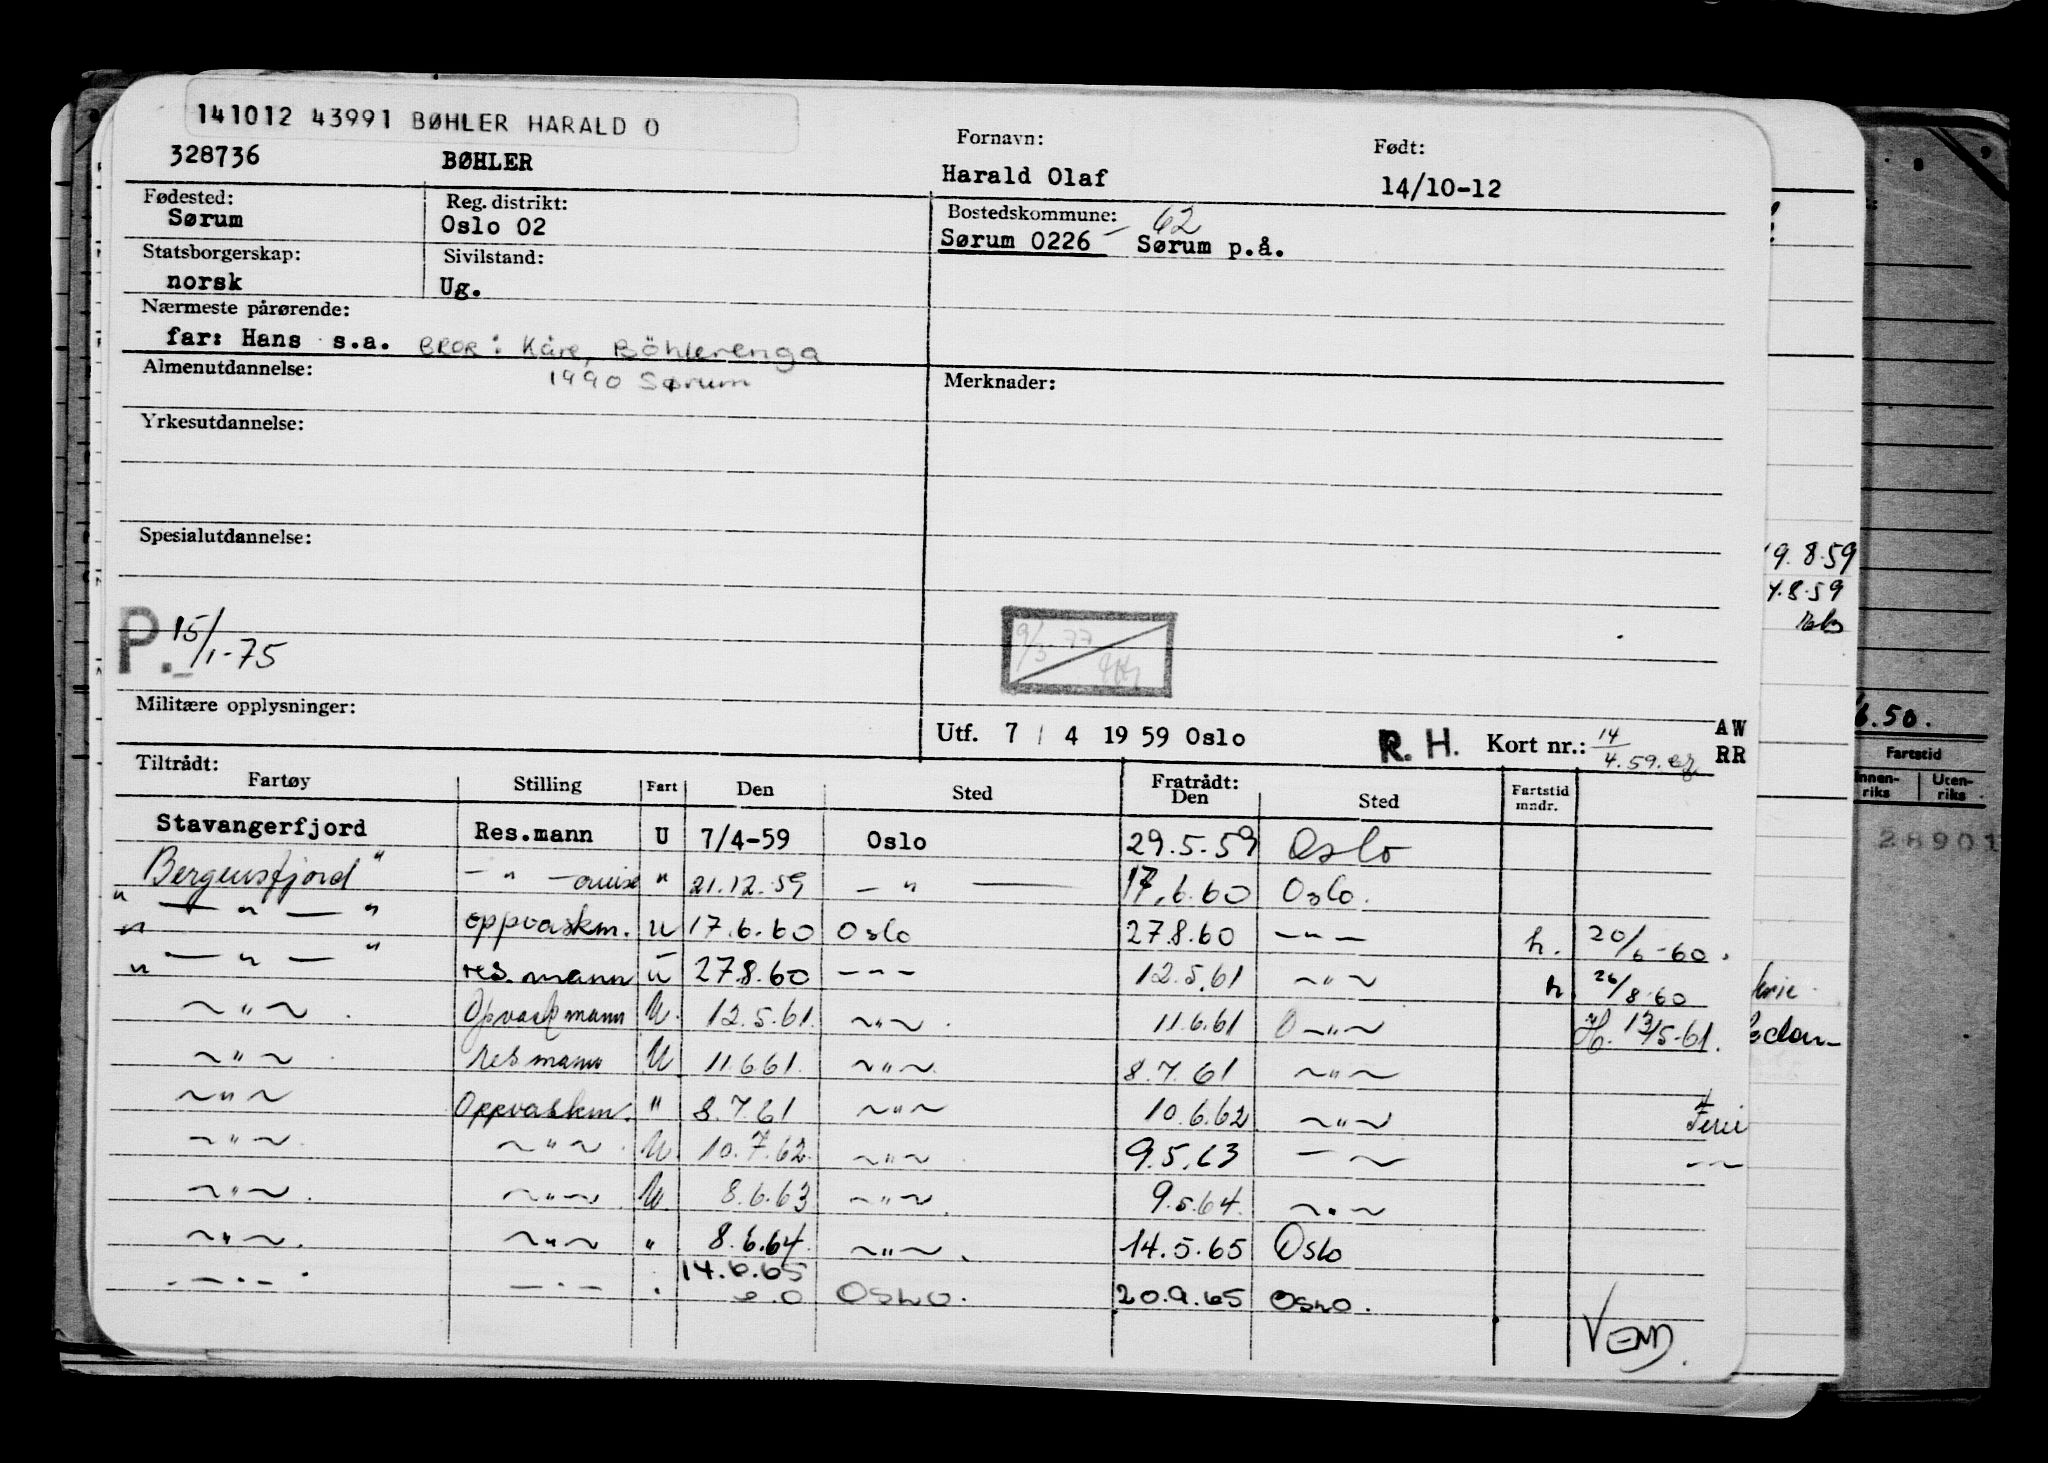 141012 43991 BØHLER HARALD O
328736 BØHLER Fornavn: Harald Olaf Født: 14/10-12
Fødested: Sørum Reg. distrikt: Oslo 02 Bostedskommune: 62 Sørum 0226 Sørum p.å.
Statsborgerskap: norsk Sivilstand: Ug.
Nærmeste pårørende:
far: Hans s.a. BROR: Kåre, Böhlerenga
1990 Sørum
Almenutdannelse: Merknader:
Yrkesutdannelse:
Spesialutdannelse:
P. 15/1-75
9/3-77
Militære opplysninger:
Utf. 7 / 4 19 59 Oslo R. H. Kort nr.: 14/4.59. AW RR
Tiltrådt: Fratrådt:
Fartøy Stilling Fart Den Sted Den Sted Fartstid mndr.
Stavangerfjord Res.mann U 7/4-59 Oslo 29.5.59 Oslo
Bergensfjord" — " — cruise " 21.12.59 — " — 17.6.60 Oslo.
" — " — " oppvaskm. u 17.6.60 Oslo 27.8.60 — " — h. 20/6-60.
" — " — " res. mann u 27.8.60 — " — 12.5.61 ~ " ~ h. 26/8-60
~ " ~ . Opvaskmann U. 12.5.61. ~ " ~ . 11.6.61 ~ " ~ H. 13/5-61.
~ " ~ res mann U 11.6.61. ~ " ~ 8.7.61 ~ " ~
~ " ~ Oppvaskm. " 8.7.61 ~ " ~ 10.6.62 ~ " ~ Ferie
~ " ~ . ~ " ~ . U. 10.7.62. ~ " ~ . 9.5.63 — ~ — ~
~ " ~ . ~ " ~ . U. 8.6.63 ~ " ~ . 9.5.64. ~ " ~
~ " ~ . ~ " ~ " 8.6.64. ~ " ~ . 14.5.65 Oslo
— " — — " — . 14.6.65 OSLO. 20.9.65 OSLO.
VEND.
19.8.59
6.50.
Fartstid
Innen-riks Uten-riks
28901